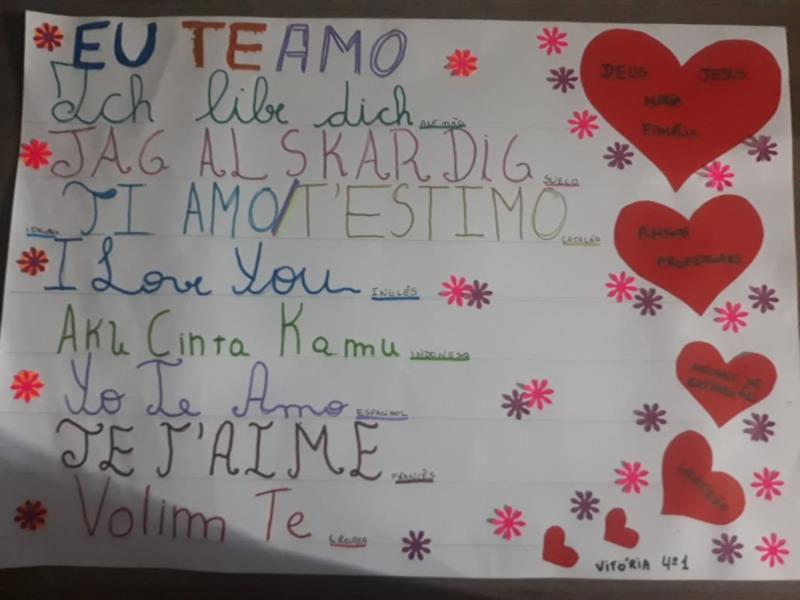 EU TE AMO
Ich libe dich ALEMÃO
JAG ALSKAR DIG SUECO
ITALIANO TI AMO/T'ESTIMO CATALÃO
I Love You INGLÊS
Aku Cinta Kamu INDONESO
Yo Te Amo ESPANHOL
JE T'AIME FRANCÊS
Volim Te CROATA
DEUS JESUS
MARIA
FAMÍLIA
AMIGOS
PROFESSORES
ANIMAIS DE
ESTIMAÇÃO
GRATIDÃO
VITÓRIA 4º1